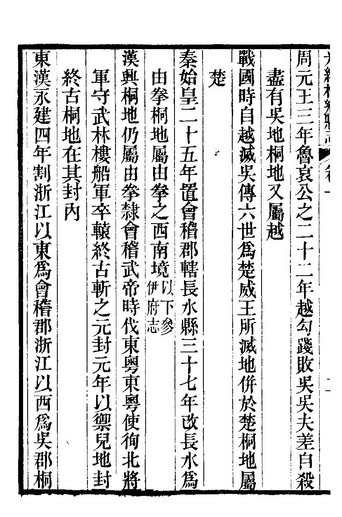 周元王三年魯哀公之二十二年越勾踐敗吳吳夫差自殺
盡有吳地桐地又屬越
戰國時自越滅吳傳六世爲楚威王所滅地併於楚桐地屬
楚
秦始皇二十五年置會稽郡轄長水縣三十七年改長水爲
由拳桐地屬由拳之西南境以下參伊府志
漢興桐地仍屬由拳隸會稽武帝時代東粵東粵使徇北將
軍守武林樓船軍卒轅終古斬之元封元年以禦兒地封
終古桐地在其封內
東漢永建四年割浙江以東爲會稽郡浙江以西爲吳郡桐